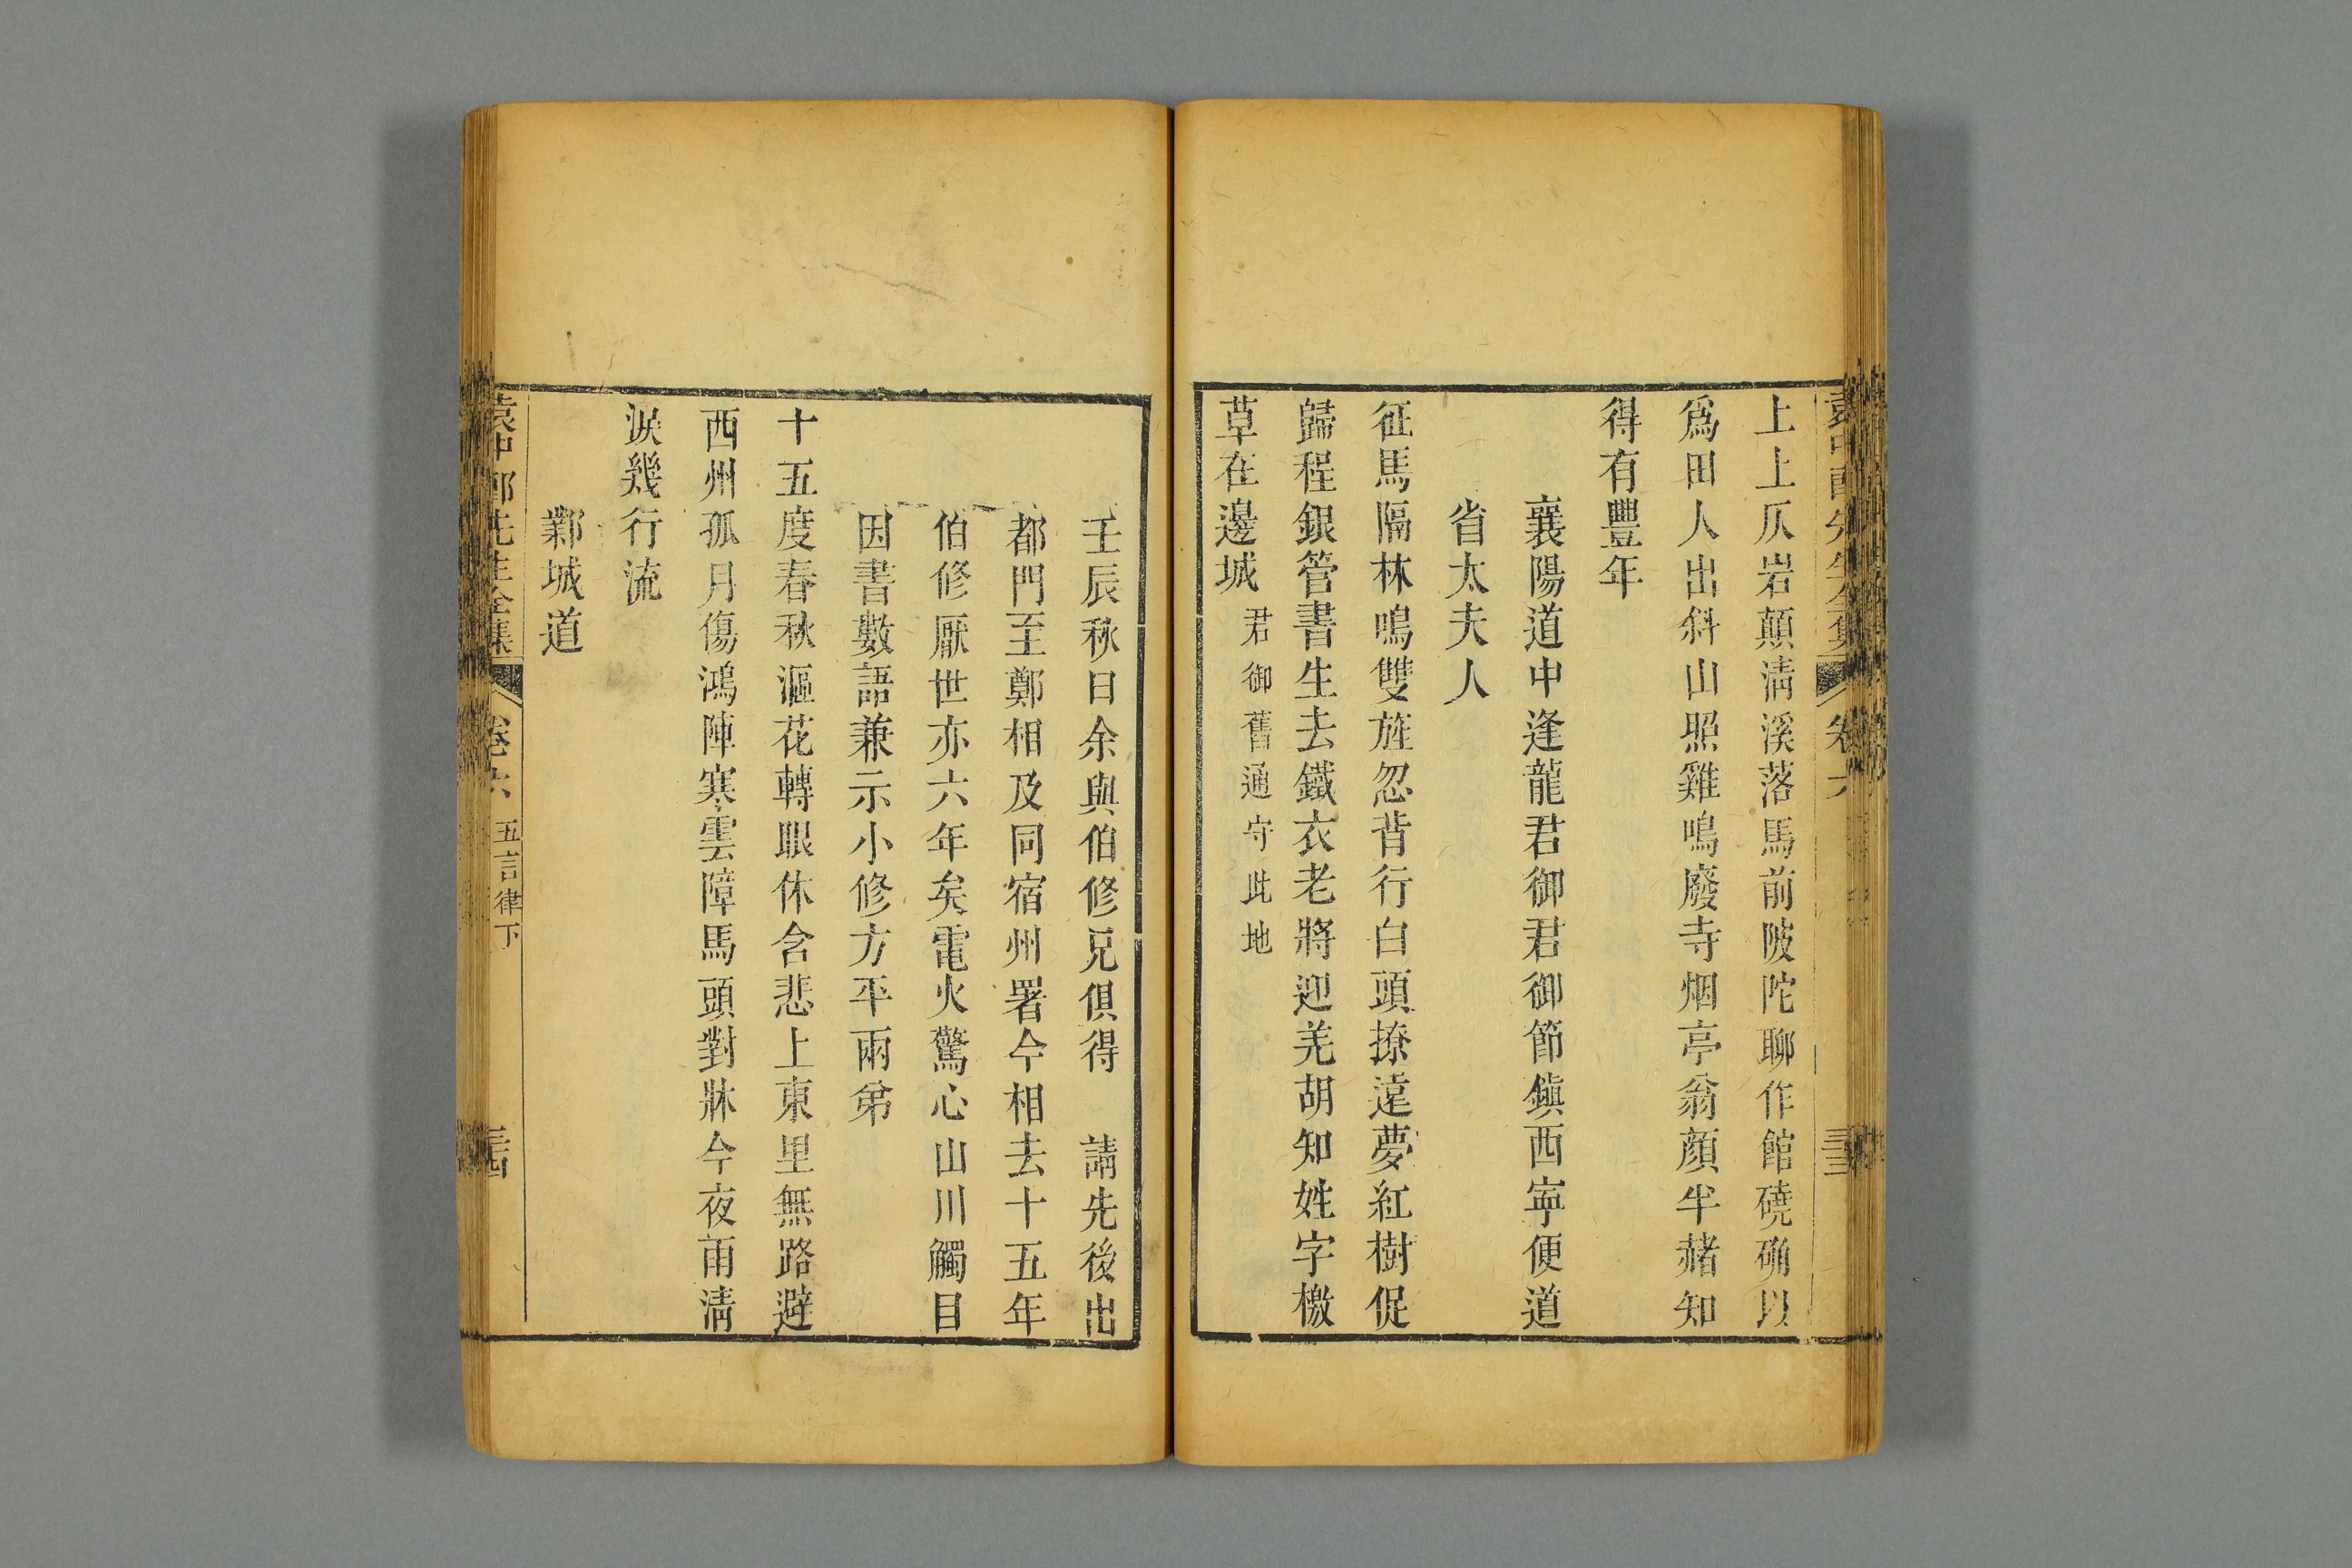 上上仄岩顛淸溪落馬前陂陀聊作館磽确以
爲田人出斜山照雞鳴廢寺烟亭翁顏半赭知
得有豐年
襄陽道中逢龍君御君御節鎭西寧便道
省太夫人
征馬隔林鳴雙旌忽背行白頭撩遠夢紅樹促
歸程銀管書生去鐵衣老將迎羌胡知姓字檄
草在邊城君御舊通守此地
壬辰秋日余與伯修兄俱得　請先後出
都門至鄭相及同宿州署今相去十五年
伯修厭世亦六年矣電火驚心山川觸目
因書數語兼示小修方平兩弟
十五度春秋漚花轉眼休含悲上東里無路避
西州孤月傷鴻陣寒雲障馬頭對牀今夜雨淸
淚幾行流
鄴城道
袁中郎先生全集　卷六　五言律下